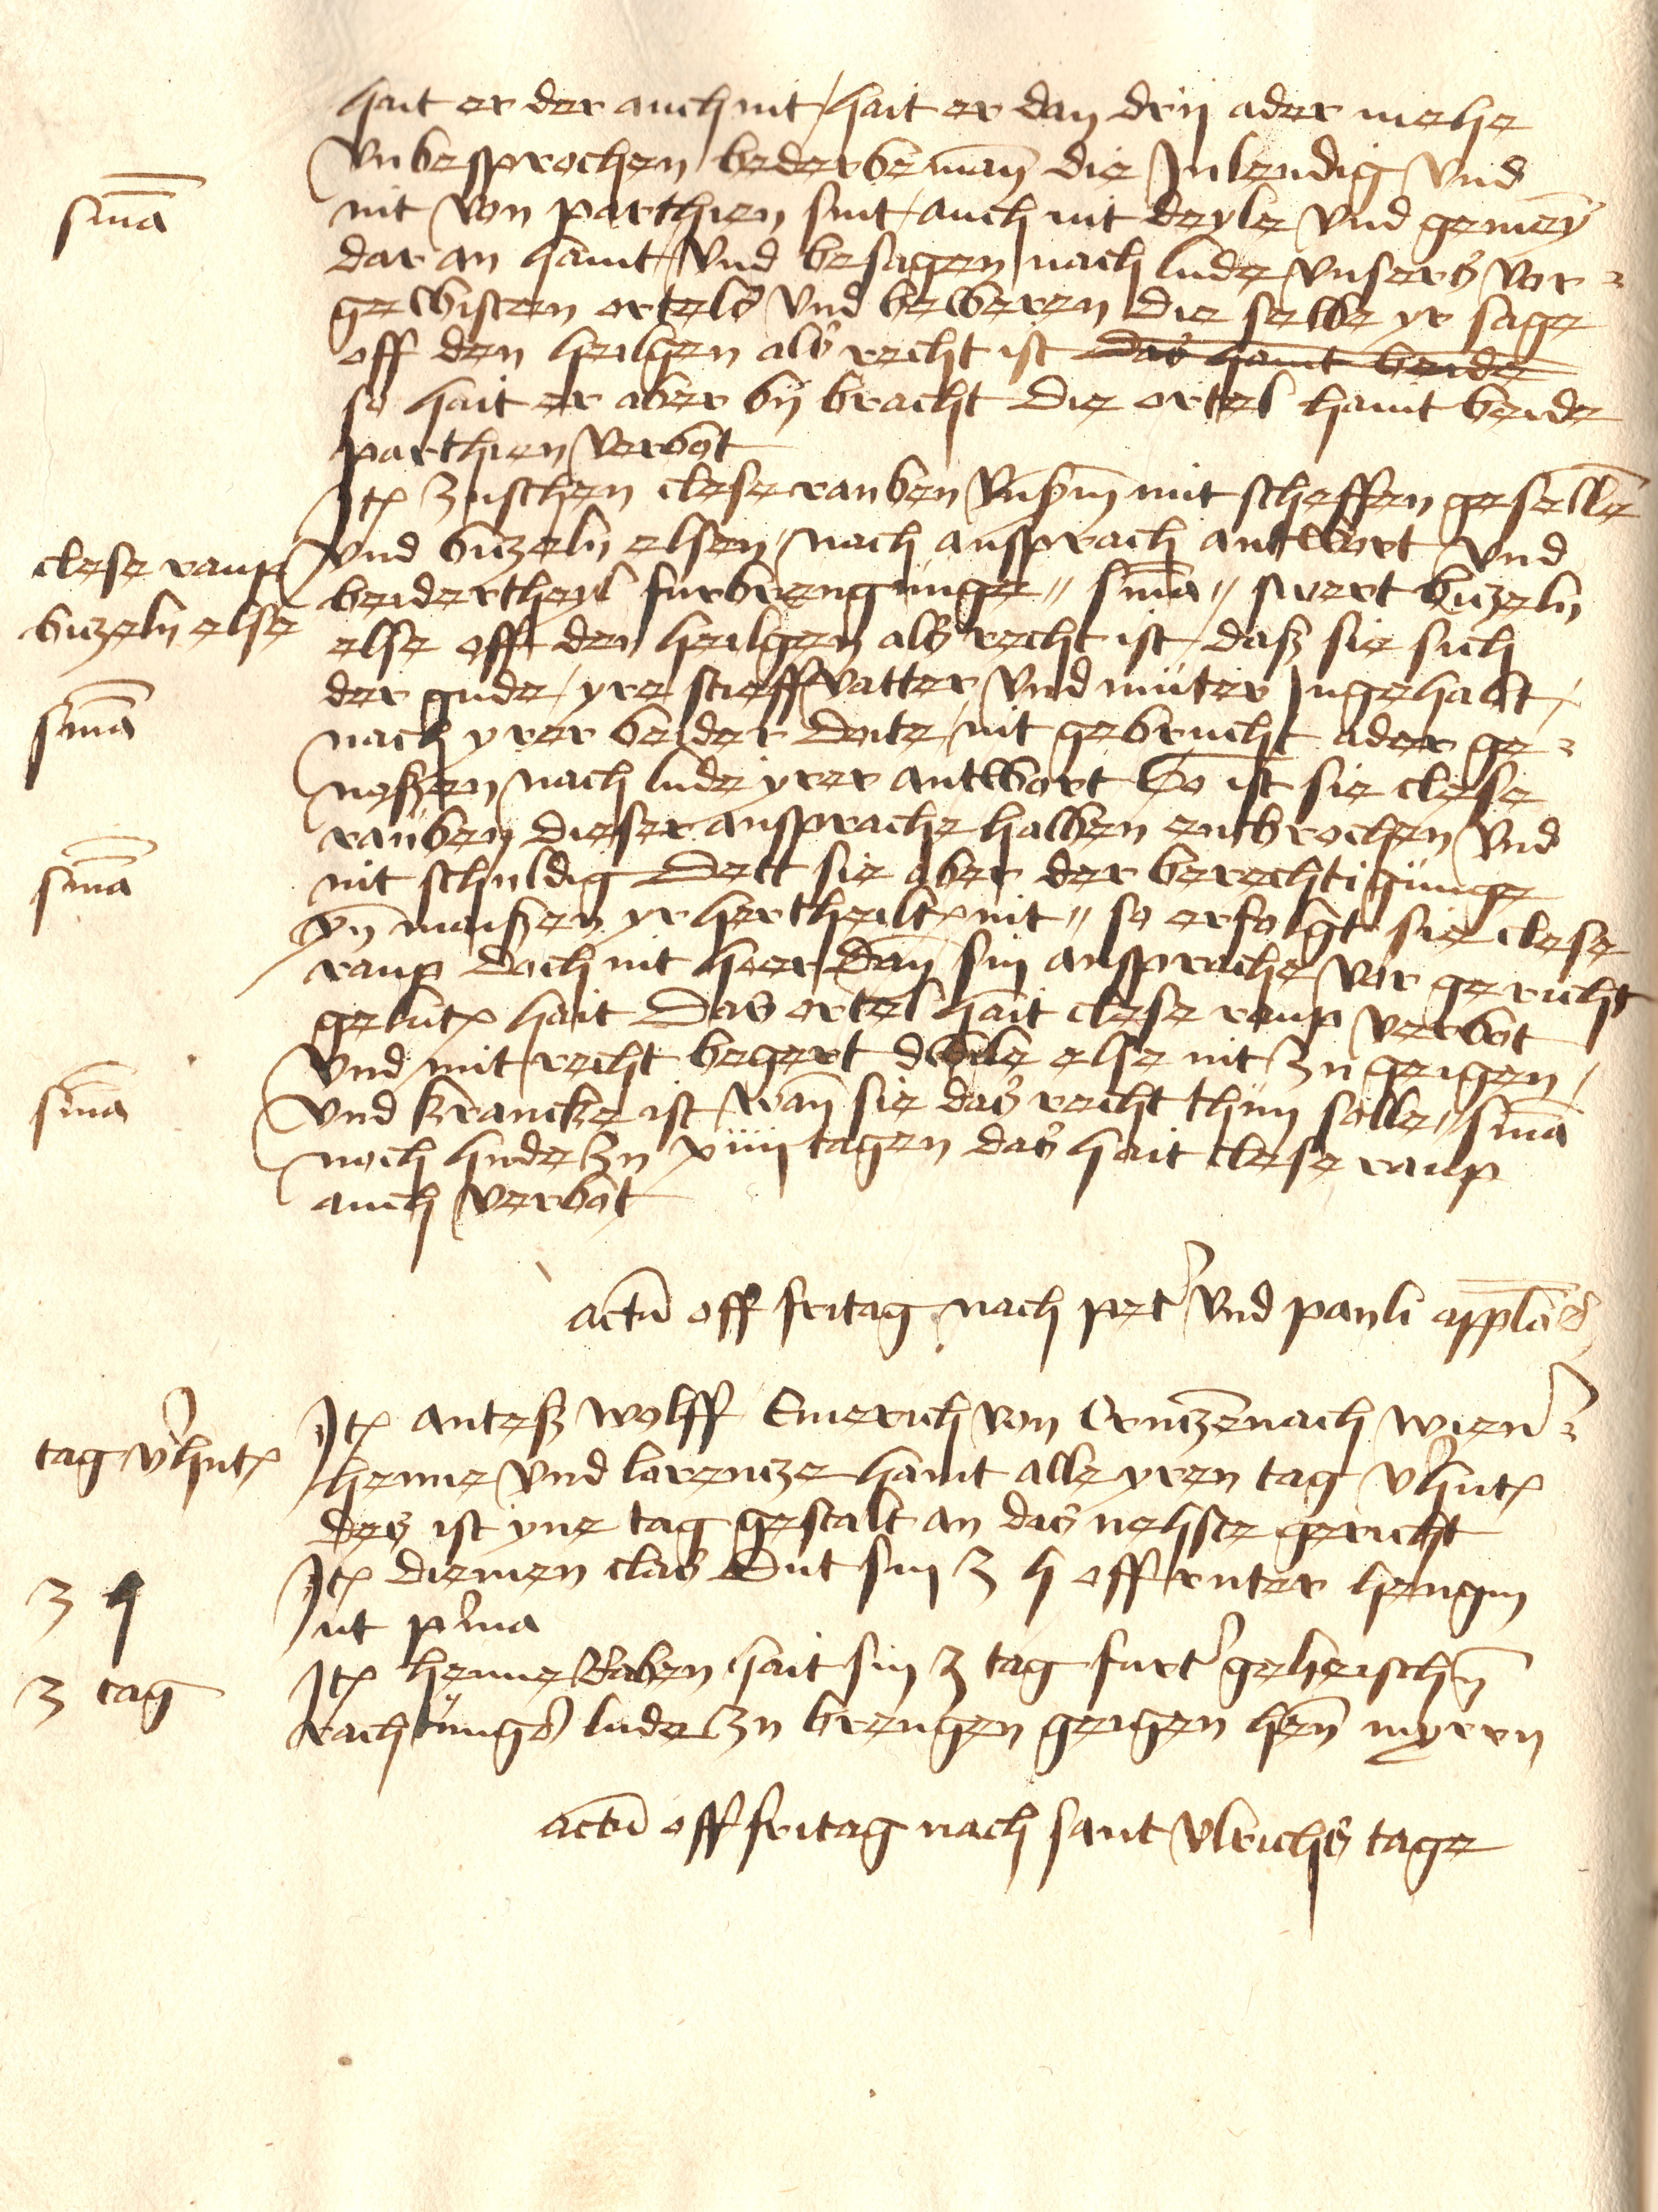 hait er der auch nit / hait er dan drij ader mehe
vnbesprochen bederbeman̄ die Inlendig vnd
sniā
nit von parthien sint / auch nit deyle vnd gemeȳ
dar an haint / vnd besagen nach lude vnsers vor=
gewisten ortels vnd beweren die selbe yr sage
off den heilgen als recht ist das haint beide
so hait er aber bij bracht Die ortel haint beide
parthien verbot
Itē zuschen clese rauben vnßm̄ mit scheffen geselln̄
clese raup
vnd buzeln elsen / nach anspprach antwort vnd
buzeln else
beidertheyl furbrengunge // sniā // swert buzeln
else off den heilgen als recht ist / daß sie sich
der gude / yre stieffvatter vnd müter Ingehabt /
sniā
nach yrer beider doite / nit gebrucht ader ge=
noßen nach lude yrer antwort So ist sie clese
rauben dieser ansprache halben enbrochen vnd
sniā
nit schuldig Dett sie aber der berechtigünge
yn̄ maißen yr hertheiltē nit // so erfolgt sie clese
raup doch nit heer dan̄ sin ansprache vor gericht
gelutē hait Das ortel hait clese raup verbot
vnd mit recht begert dwile else nit zu geigen /
sniā
vnd krancke ist / wan̄ sie das recht thün solle // sniā
noch hude zu xiiij tagen das hait clese raup
auch verbot
actū off fritag nach pet' vnd pauli appl'ō
Itē anteß wolff Emerich von Crutzēnach wien'=
tag v'hutē
henne vnd lorentze haint alle yren tag v'hutē
des ist yne tag gestalt an das nehste gericht
3 h
Itē diemen clas dut sin 3 h off ruter hengin
Int p'ma
3 tag
Itē henne Raben hait sin 3 tag furt' geheischn̄
rachtungs lude zu brengen geigen hen̄ myern
actū off fritag nach sant vlrichs tage